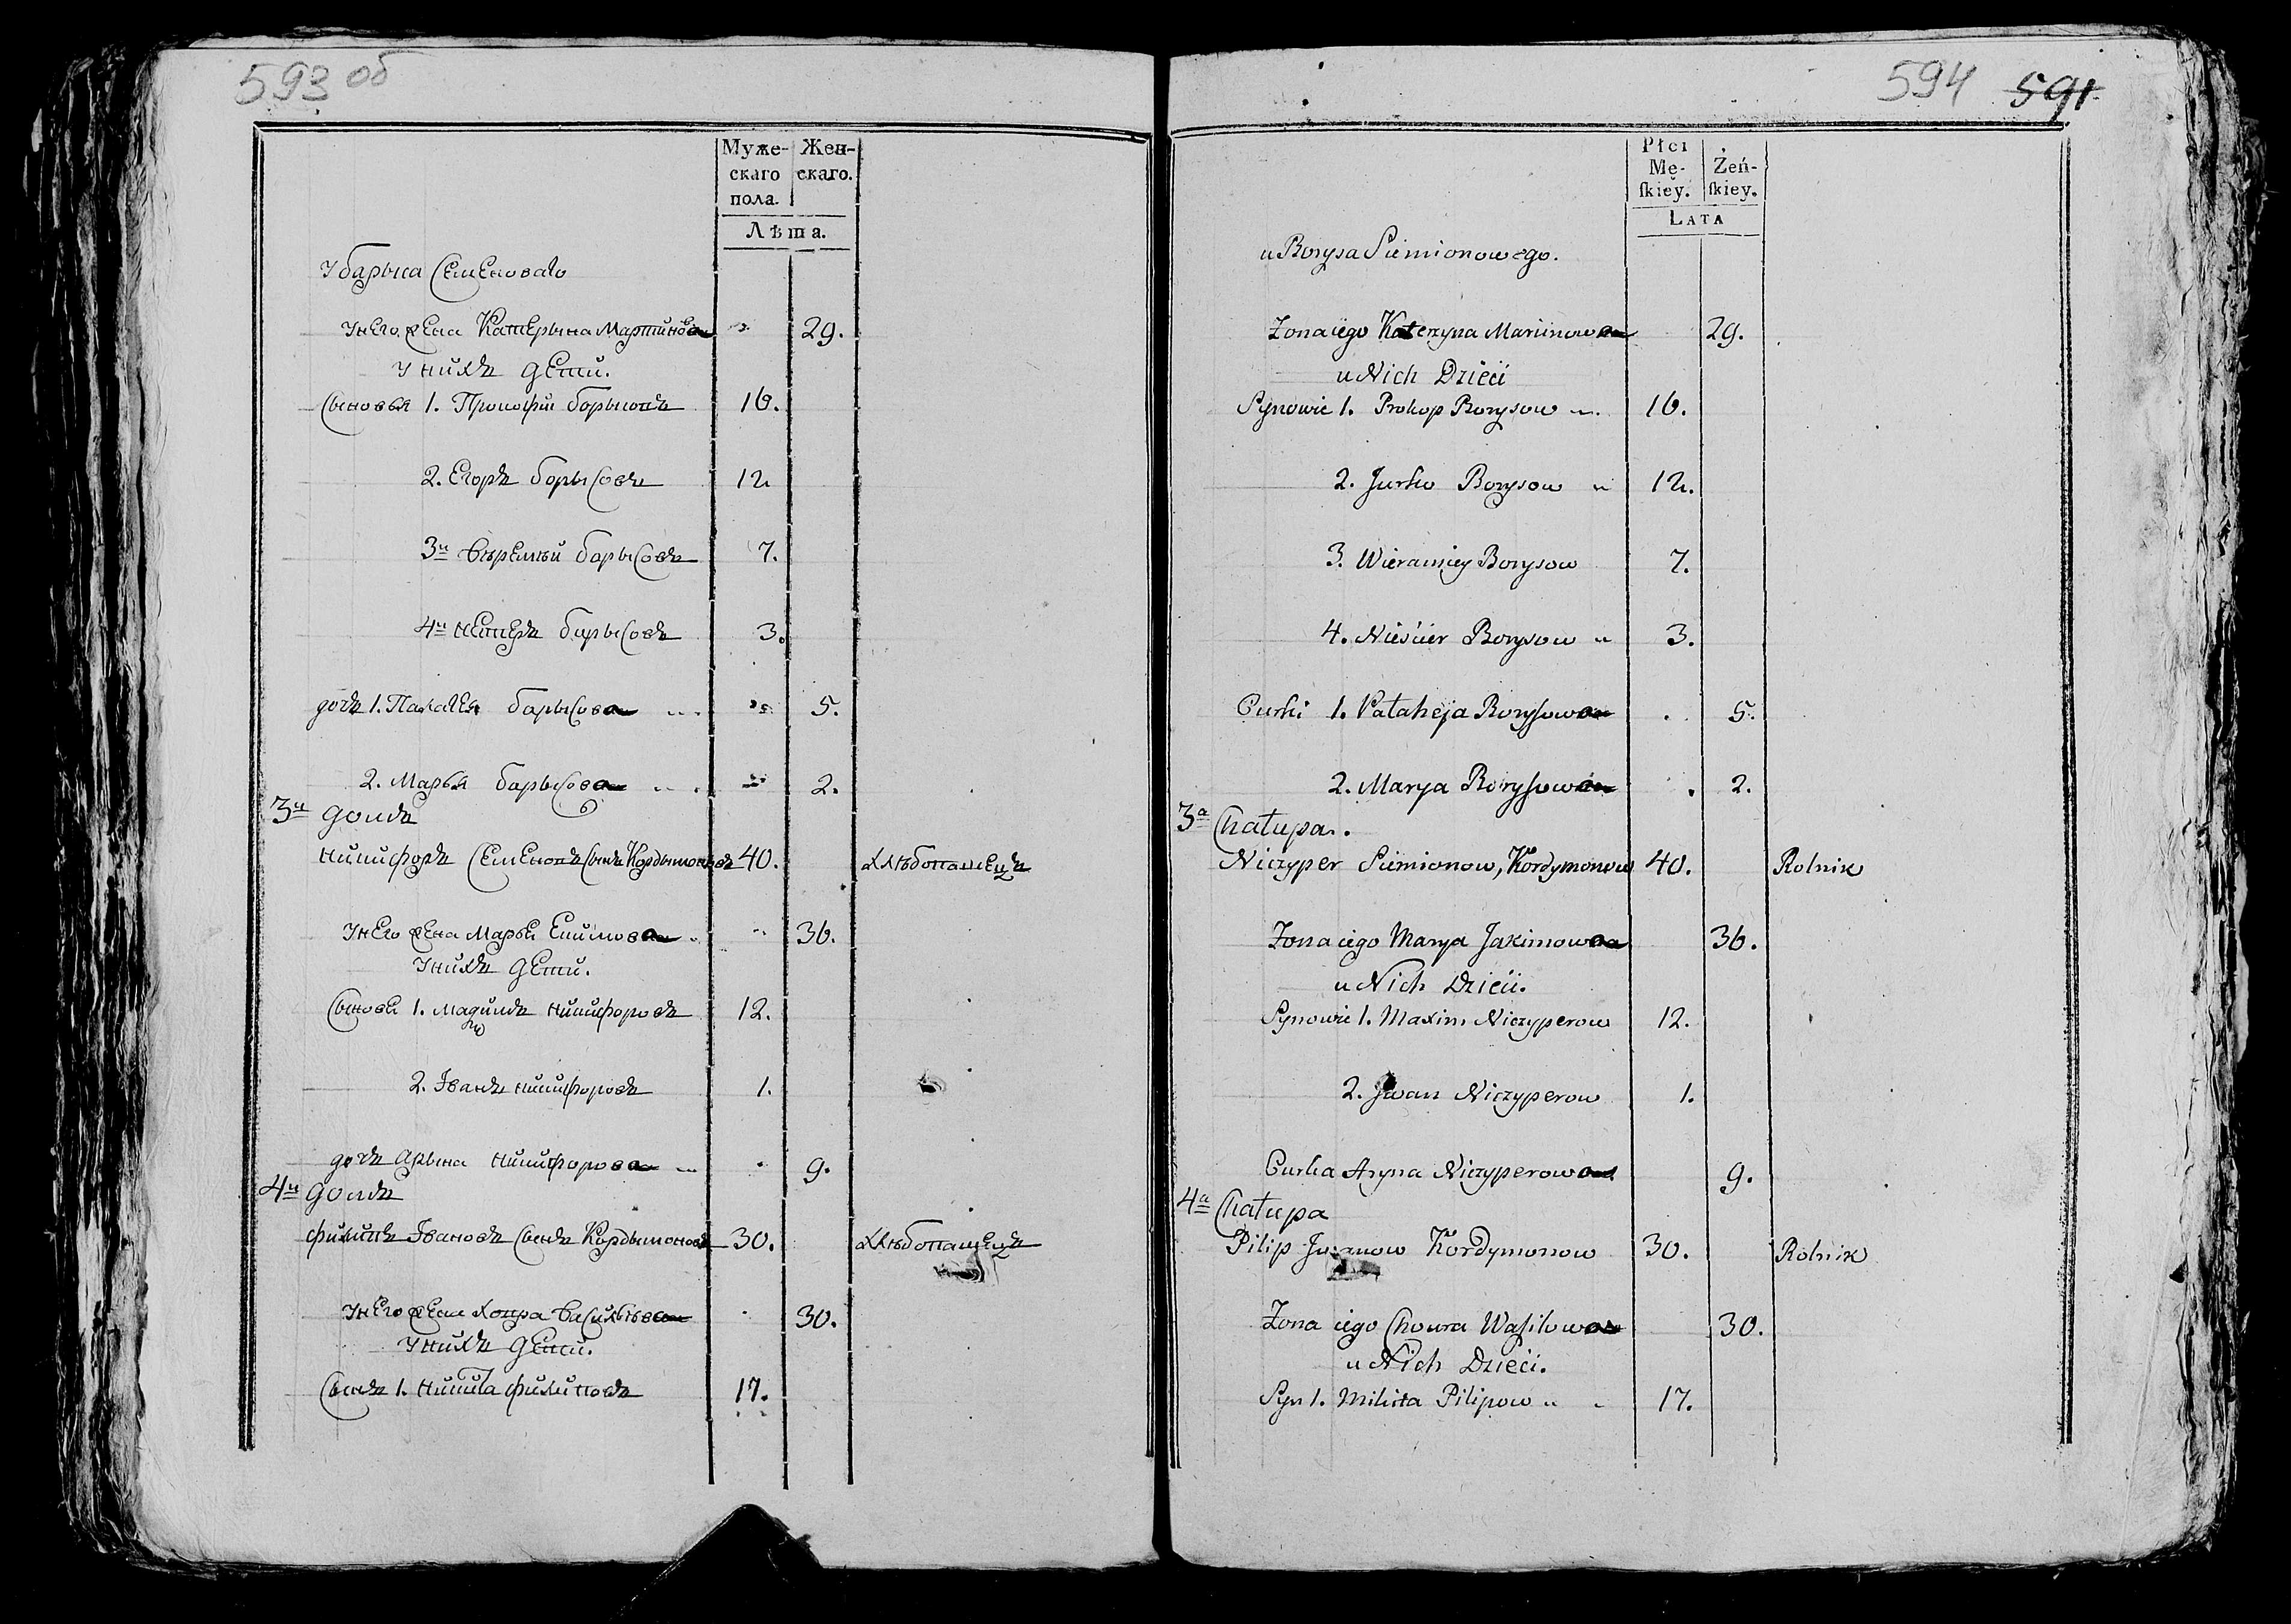 593 об
Муже-
скаго
пола.
Жен-
скаго.
Лѣта.
У барыса Семеноваго
у него жена Катерына Мартинова 29.
у нихъ дети.
Сыновья 1. Прокофий борысовъ 16.
2. Егоръ борысовъ 12
3й Веремѣй барысовъ 7.
4й Нестеръ барысовъ 3.
дочь 1. Палагея барысова 5.
2. Марья барысова 2.
3й домъ
Никифоръ Семеновъ сынъ Кордымоновъ 40. хлѣбопашецъ
у него жена Марья Екимова 36.
у нихъ дети.
Сыновя 1. Никифоровъ 12.
2. Іванъ Никифоровъ 1.
дочь Арына Никифорова 9.
4й домъ
Филипъ Івановъ сынъ Кордымоновъ 30. хлѣбопашецъ
у него жена Хопра Василѣва 30.
у нихъ дети.
Сынъ 1. Никита Филиповъ 17.
594 591
Płci
Mę-
skiey.
Żeń-
skiey.
LATA
u Borysa Siemionowego.
Zona iego Katerzyna Marcinowa 29.
u Nich Dzieci
Synowie 1. Prokop Borysow 16.
2. Jurko Borysow 12.
3. Wieramiey Borysow 7.
4. Nieścier Borysow 3.
Curki 1. Pałaheja Borysowa 5.
2. Marya Borysowa 2.
3a Chałupa.
Niczyper Siemionow, Kordymonow 40. Rolnik
Zona iego Marya Jakimowa 36.
u Nich Dzieci.
Synowie 1. Maxim Niczyperow 12.
2. Jwan Niczyperow 1.
Curka Aryna Niczyperowa 9.
4a Chałupa
Pilip Jwanow Kordymonow 30. Rolnik
Zona iego Chowra Wasilowa 30.
u Nich Dzieci.
Syn 1. Mikita Pilipow 17.